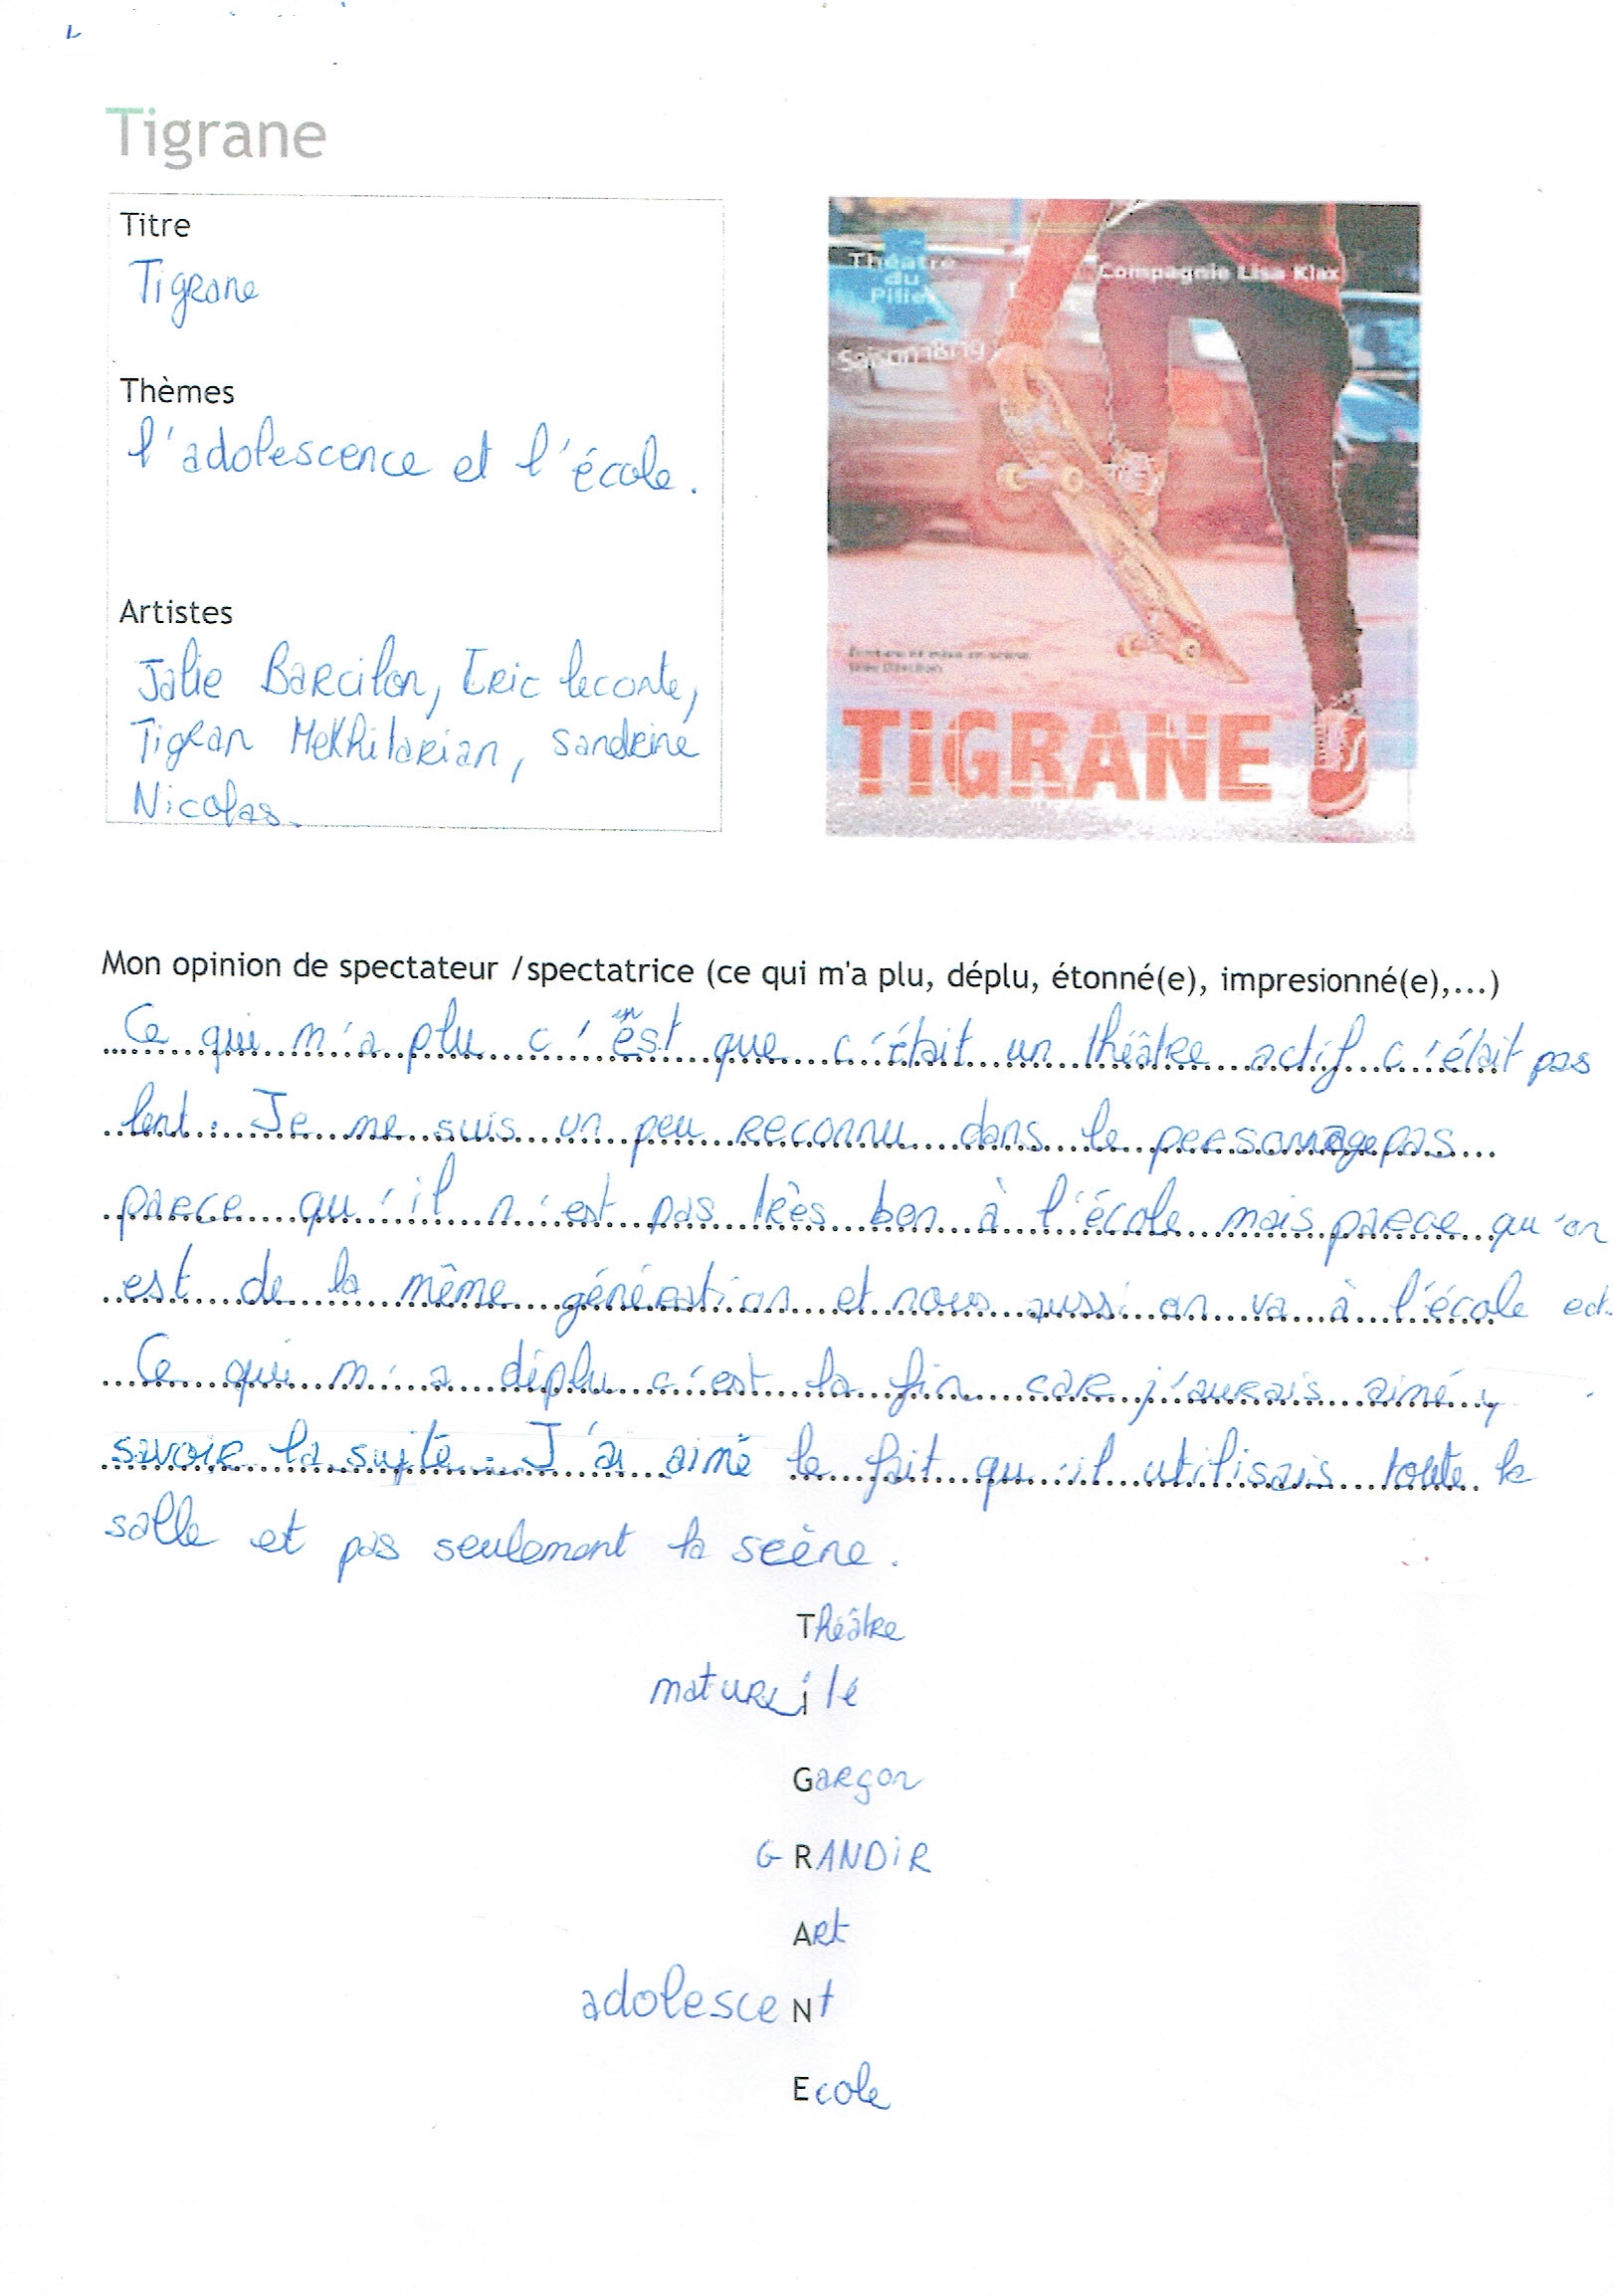 Tigrane
Titre
Tigrane
Thèmes
l'adolescence et l'école.
Artistes
Jalie Barcilon, Eric leconte,
Tigran Mekhitarian, sandrine
Nicolas.
Théâtre
du
Pilier
Compagnie Lisa Klax
Saison 18/19
Écriture et mise en scène
TIGRANE
Mon opinion de spectateur /spectatrice (ce qui m'a plu, déplu, étonné(e), impresionné(e),...)
Ce qui m'a plu c'est que c'était un théâtre actif c'était pas
lent. Je me suis un peu reconnu dans le personnage pas
parce qu'il n'est pas très bon à l'école mais parce qu'on
est de la même génération et nous aussi on va à l'école ect.
Ce qui m'a déplu c'est la fin car j'aurais aimé,
savoir la suite. J'ai aimé le fait qu'il utilisais toute la
salle et pas seulement la scène.
Théâtre
maturité
Garçon
GRANDiR
Art
adolesceNt
Ecole